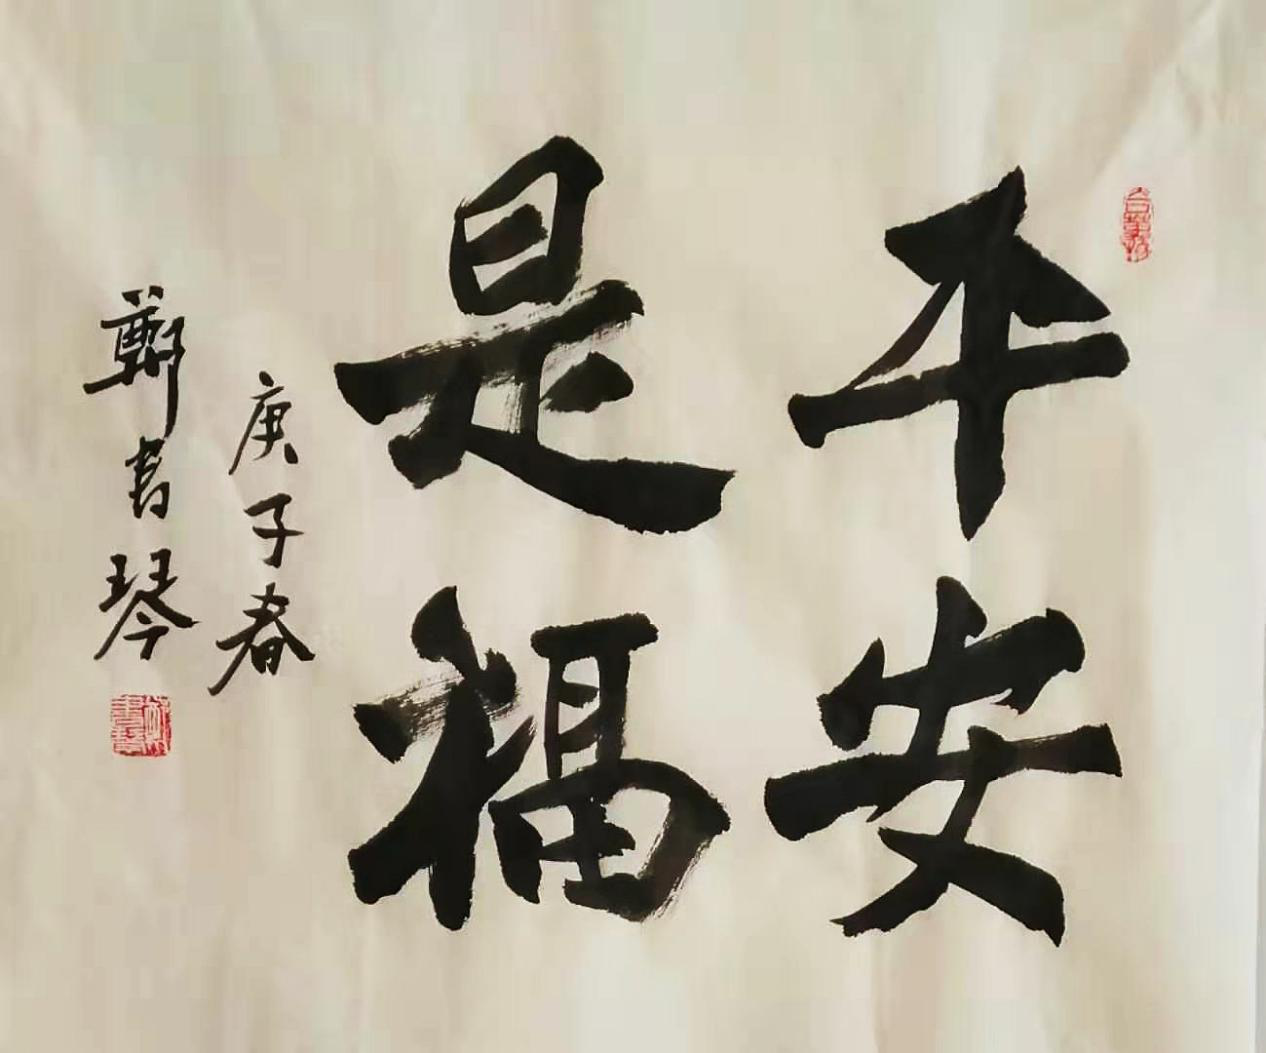 平安
是福
庚子春
鄭書琴